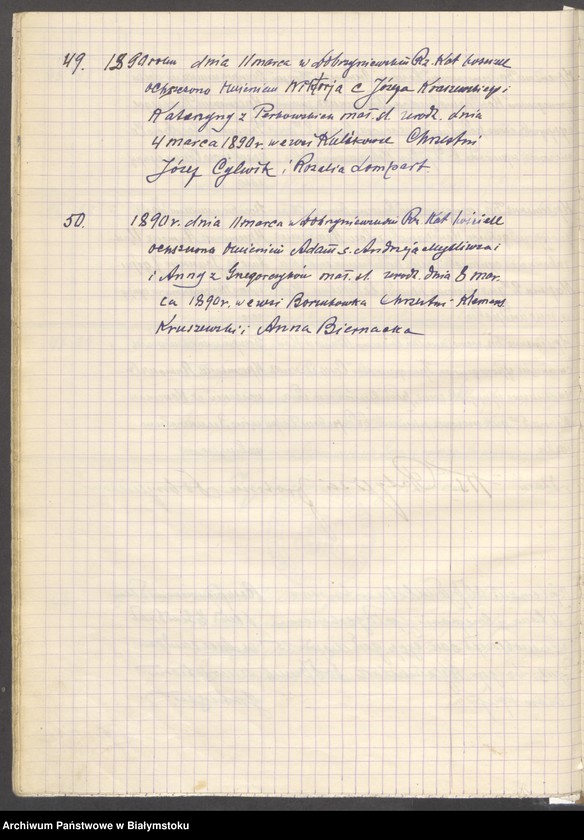 49. 1890 roku dnia 11 marca w Dobrzyniewskim Rz. Kat kościele
ochrzczono imieniem Wiktorja c Józefa Kruszewskiego i
Katarzyny z mał. śl. urodz. dnia
4 marca 1890 r. we wsi Kulikowce Chrzestni
Józef Cylwik i Rozalia Lompart
50. 1890 r. dnia 11 marca w Dobrzyniewskim Rz. Kat kościele
ochrzczono imieniem Adam s. Andrzeja Mysliwca i
i Anny z Gregorczyków mał. śl. urodz. dnia 8 mar-
ca 1890 r. we wsi Borsukowka Chrzestni - Klemens
Kruszewski i Anna Biernacka
Archiwum Państwowe w Białymstoku